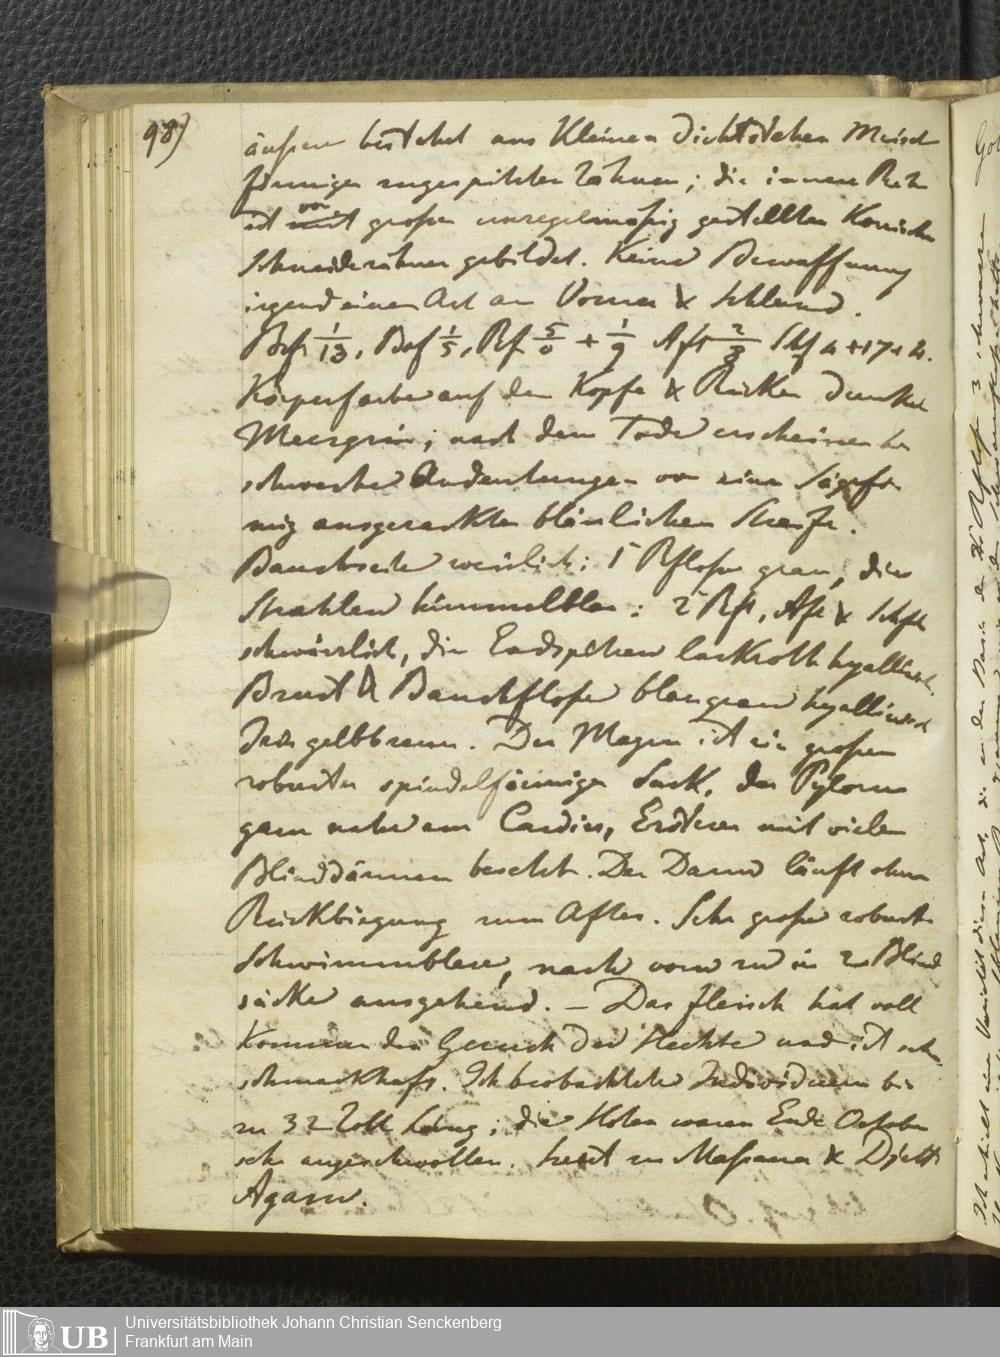 98)
äußere besteht aus Kleinen dichtstehen Meisel
förmigen zugespitzten Zähnen; die innere Reihe
ist von großen unregelmäßig gestellten Konischen
Schneidezähnen gebildet. Keine Bewaffnung
irgend einer Art am Vomer & Schlund.
Brfl 1/13, Bafl 1/5, Rfl 5/0 + 1/9 Aft 2/8 Shfl 4+17+4.
Körperfarbe auf dem Kopfe & Rücken dunkel
Meergrün; nach dem Tode erscheinen
schwache Andeutungen von einer Sägeför
mig ausgezackten bläulichen Streife.
Bauchseite weislich: 1 Rflosse grau, die
Strahlen himmelblau: 2 Rfl, Afl & Schfl
schwärzlich, die Endspitzen lackroth hyallinisch,
Brust & Bauchflosse blaugrau hyallinisch
Iris gelbbraun. Der Magen ist ein großer
robuster spindelförmiger Sack, der Pylorus
ganz nahe am Cardia, Ersterer mit vielen
Blinddärmen besetzt. Der Darm läuft ohne
Rückbiegung zum After. Sehr große robuste
Schwimmblase, nach vorn zu in 2 Blind
säcke ausgehend. — Das Fleisch hat voll
kommen den Geruch der Hechte und ist sehr
schmackhaft. Ich beobachtete Individuen bis
zu 32 Zoll Läng; die Hoden waren Ende October
sehr angeschwollen. heist zu Massaua & Djetta
Agam.
Universitätsbibliothek Johann Christian Senckenberg
Frankfurt am Main
UB